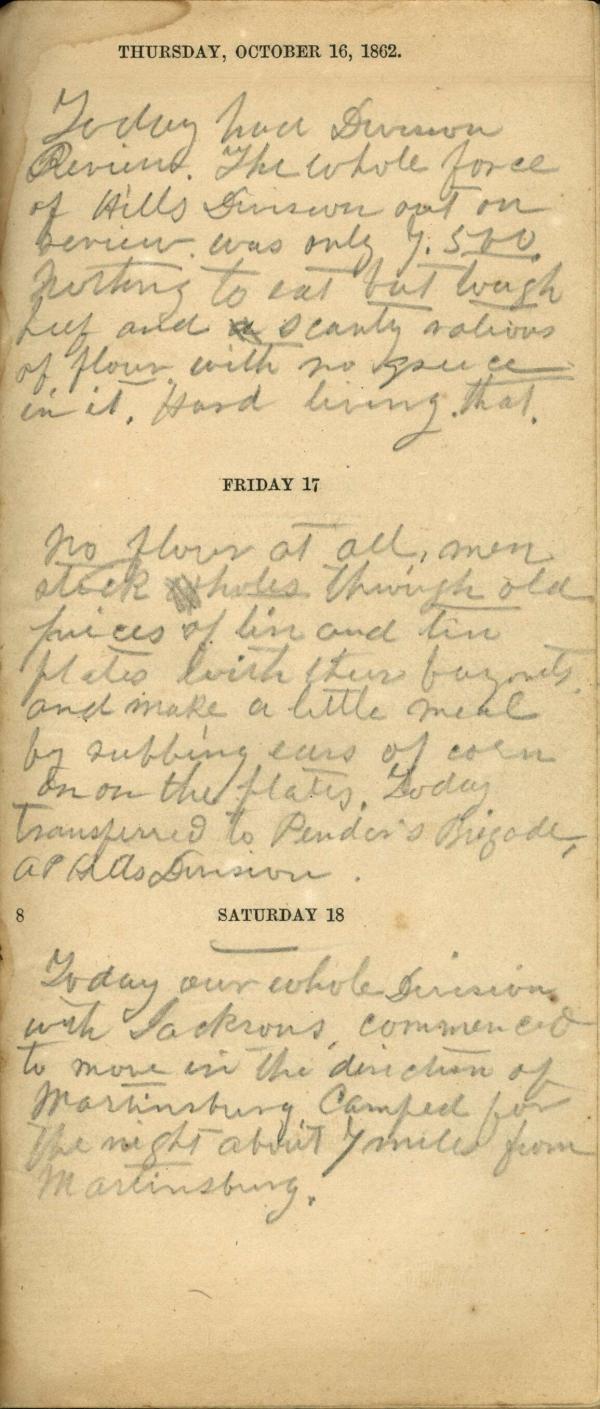 THURSDAY, OCTOBER 16, 1862.
Today had Division
Review. The whole force
of Hills Division out on
review was only 7.500.
Nothing to eat but tough
beef and a scanty rations
of flour with no grease
in it. Hard living that.
FRIDAY 17
No flour at all, men
stick holes through old
pieces of tin and tin
plates with their bayonets
and make a little meal
by rubbing ears of corn
on on the plates. Today
transferred to Pender's Brigade,
AP Hills Division.
8 SATURDAY 18
Today our whole Division
with Jacksons, commenced
to move in the direction of
Martinsburg Camped for
the night about 7 miles from
Martinsburg.